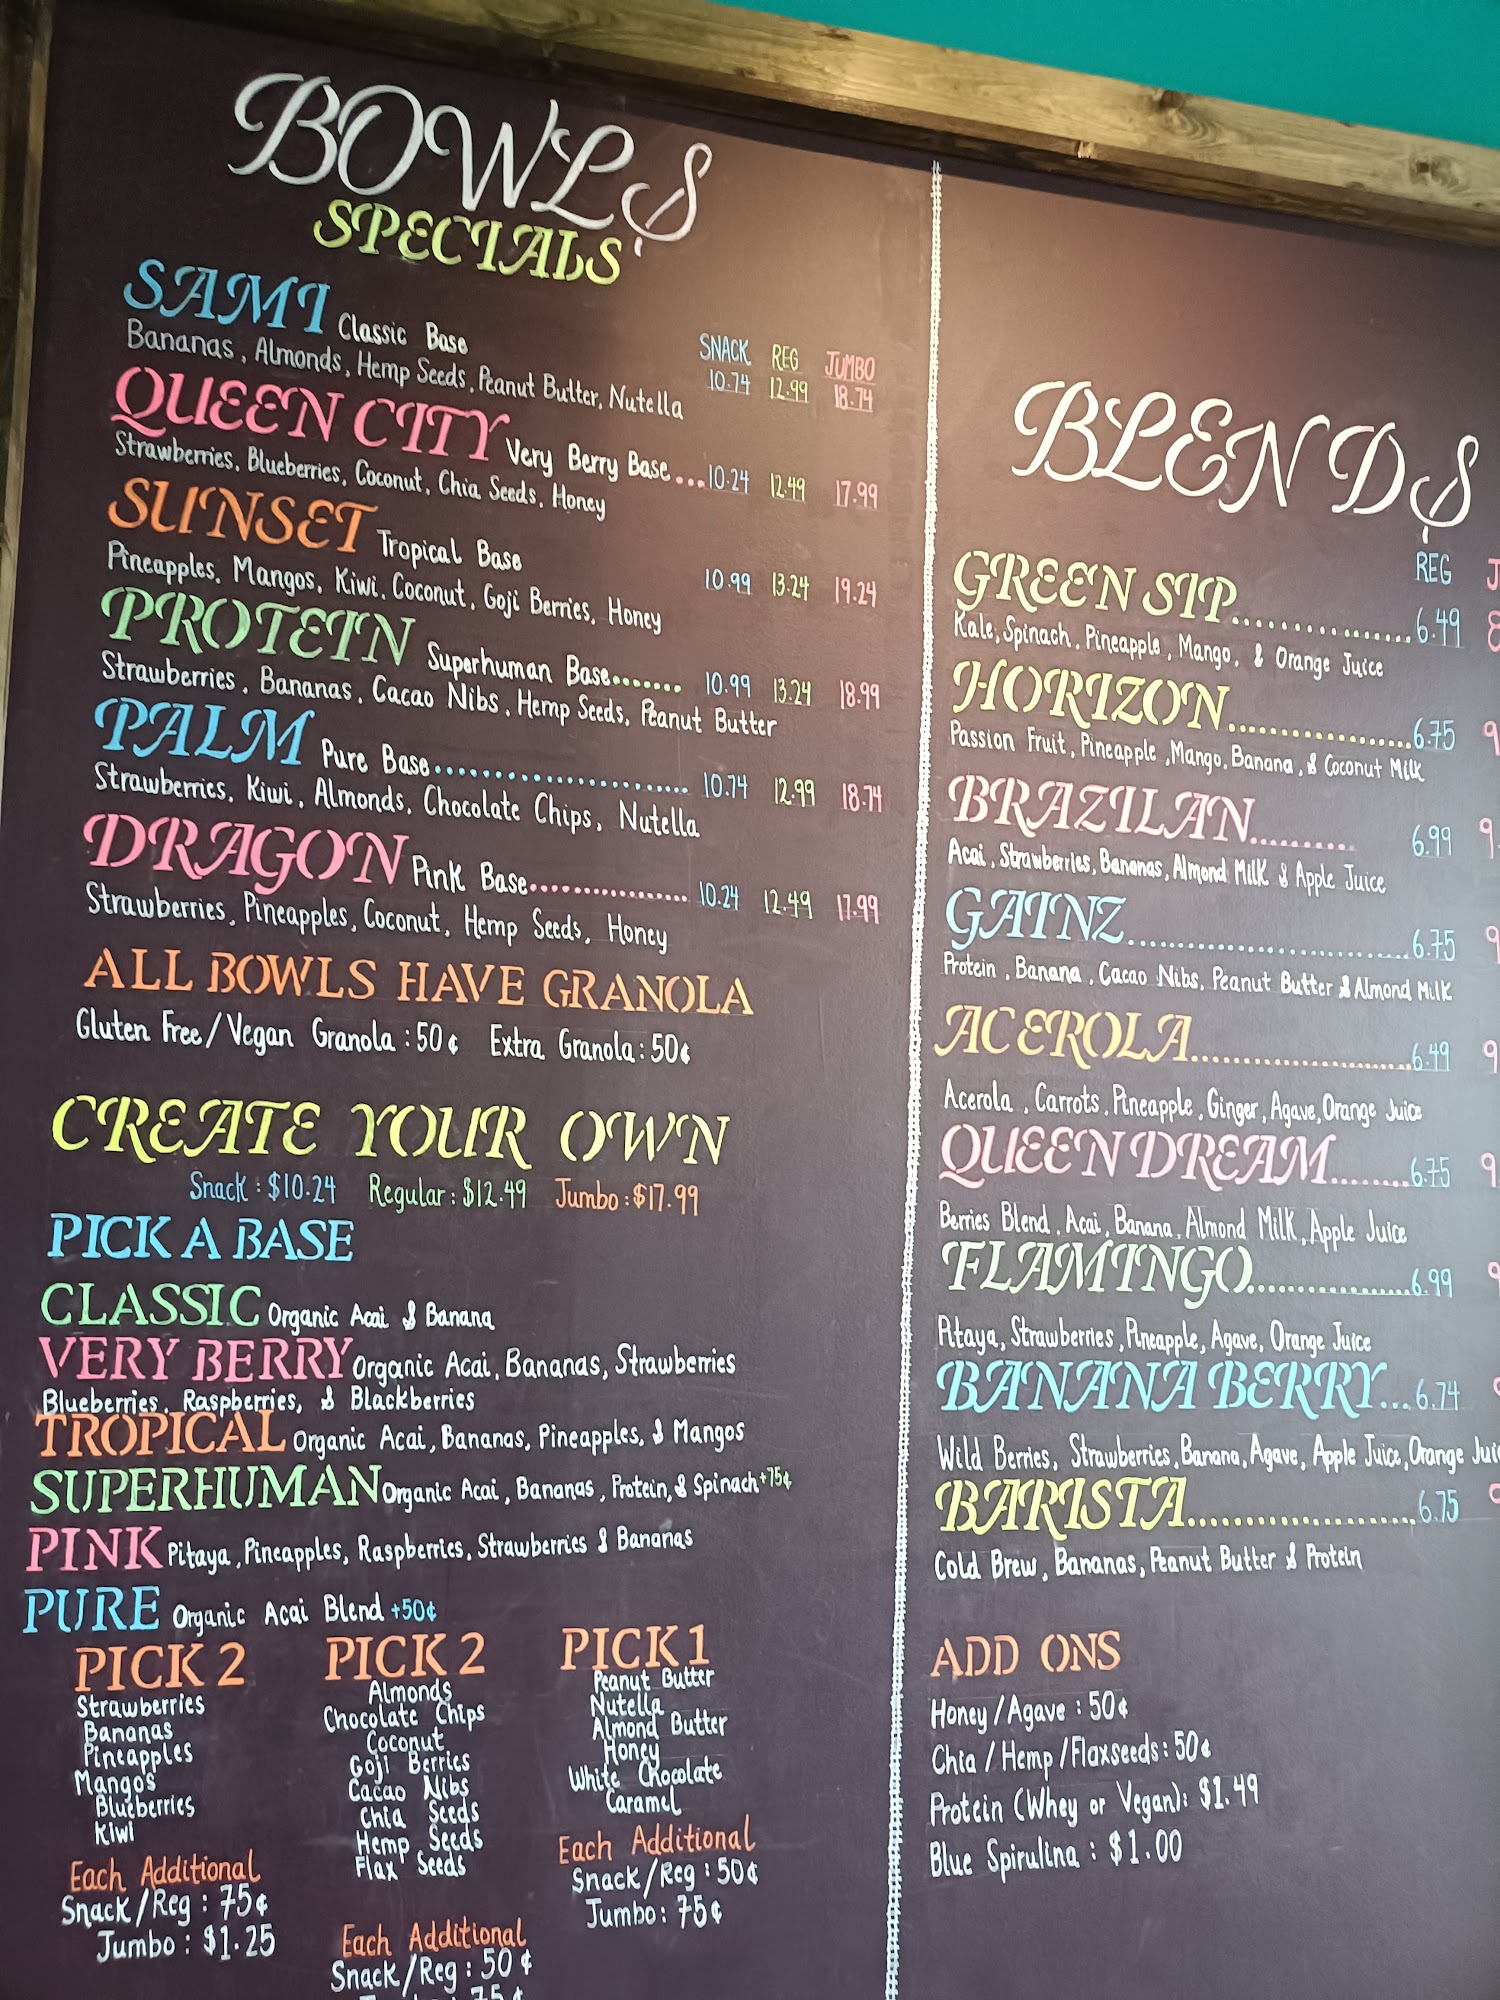 BOWLS
SPECIALS
SAMI Classic Base
SNACK REG JUMBO
Bananas, Almonds, Hemp Seeds, Peanut Butter, Nutella 10.74 12.99 18.74
QUEEN CITY Very Berry Base...10.24 12.49 17.99
Strawberries, Blueberries, Coconut, Chia Seeds, Honey
SUNSET Tropical Base 10.99 13.24 19.24
Pineapples, Mangos, Kiwi, Coconut, Goji Berries, Honey
PROTEIN Superhuman Base....... 10.99 13.24 18.99
Strawberries, Bananas, Cacao Nibs, Hemp Seeds, Peanut Butter
PALM Pure Base........................ 10.74 12.99 18.74
Strawberries, Kiwi, Almonds, Chocolate Chips, Nutella
DRAGON Pink Base................ 10.24 12.49 17.99
Strawberries, Pineapples, Coconut, Hemp Seeds, Honey
ALL BOWLS HAVE GRANOLA
Gluten Free/Vegan Granola: 50¢ Extra Granola: 50¢
CREATE YOUR OWN
Snack: $10.24 Regular: $12.49 Jumbo: $17.99
PICK A BASE
CLASSIC Organic Acai & Banana
VERY BERRY Organic Acai, Bananas, Strawberries
Blueberries, Raspberries, & Blackberries
TROPICAL Organic Acai, Bananas, Pineapples, & Mangos
SUPERHUMAN Organic Acai, Bananas, Protein, & Spinach +75¢
PINK Pitaya, Pineapples, Raspberries, Strawberries & Bananas
PURE Organic Acai Blend +50¢
PICK 2
Strawberries
Bananas
Pineapples
Mangos
Blueberries
Kiwi
Each Additional
Snack/Reg: 75¢
Jumbo: $1.25
PICK 2
Almonds
Chocolate Chips
Coconut
Goji Berries
Cacao Nibs
Chia Seeds
Hemp Seeds
Flax Seeds
Each Additional
Snack/Reg: 50¢
75¢
PICK 1
Peanut Butter
Nutella
Almond Butter
Honey
White Chocolate
Caramel
Each Additional
Snack/Reg: 50¢
Jumbo: 75¢
BLENDS
REG J
GREEN SIP................6.49 8
Kale, Spinach, Pineapple, Mango, & Orange Juice
HORIZON..................6.75 9
Passion Fruit, Pineapple, Mango, Banana, & Coconut Milk
BRAZILIAN.......... 6.99 9
Acai, Strawberries, Bananas, Almond Milk & Apple Juice
GAINZ............................6.75 9
Protein, Banana, Cacao Nibs, Peanut Butter & Almond Milk
ACEROLA......................6.49 9
Acerola, Carrots, Pineapple, Ginger, Agave, Orange Juice
QUEEN DREAM........6.75 9
Berries Blend, Acai, Banana, Almond Milk, Apple Juice
FLAMINGO................6.99 9
Pitaya, Strawberries, Pineapple, Agave, Orange Juice
BANANA BERRY...6.74
Wild Berries, Strawberries, Banana, Agave, Apple Juice, Orange Jui
BARISTA......................6.75 9
Cold Brew, Bananas, Peanut Butter & Protein
ADD ONS
Honey/Agave: 50¢
Chia/Hemp/Flaxseeds: 50¢
Protein (Whey or Vegan): $1.49
Blue Spirulina: $1.00